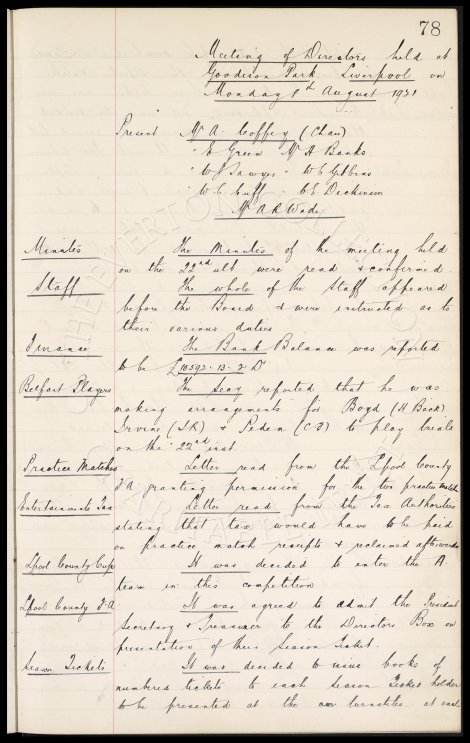 78
Meeting of Directors held at
Goodison Park Liverpool on
Monday 1st August 1921
Present Mr A. Coffey (Chair)
" E Green Mr A Banks
" W Sawyer " W E Gibbins
" W C Cuff " C E Dickinson
Mr A R Wade
Minutes The Minutes of the meeting held
on the 22nd ult were read & confirmed.
Staff The whole of the Staff appeared
before the Board & were instructed as to
their various duties
Finance The Bank Balance was reported
to be £10592.13.2 Dr
Belfast Players The Secy reported that he was
making arrangements for Boyd (H Back)
Irvine & Peden to play trials
on the 22nd inst.
Practice Matches Letter read from the Lpool County
FA granting permission for the two practice matches
Entertainments Tax Letter read from the Tax Authorities
stating that tax would have to be paid
on practice match receipts & reclaimed afterwards
Lpool County Cup It was decided to enter the A
team in this competition
Lpool County F.A It was agreed to admit the President
Secretary & Treasurer to the Directors Box on
presentation of their Season Ticket.
Season Tickets It was decided to issue books of
numbered tickets to each Season Ticket holder
to be presented at the turnstiles at each